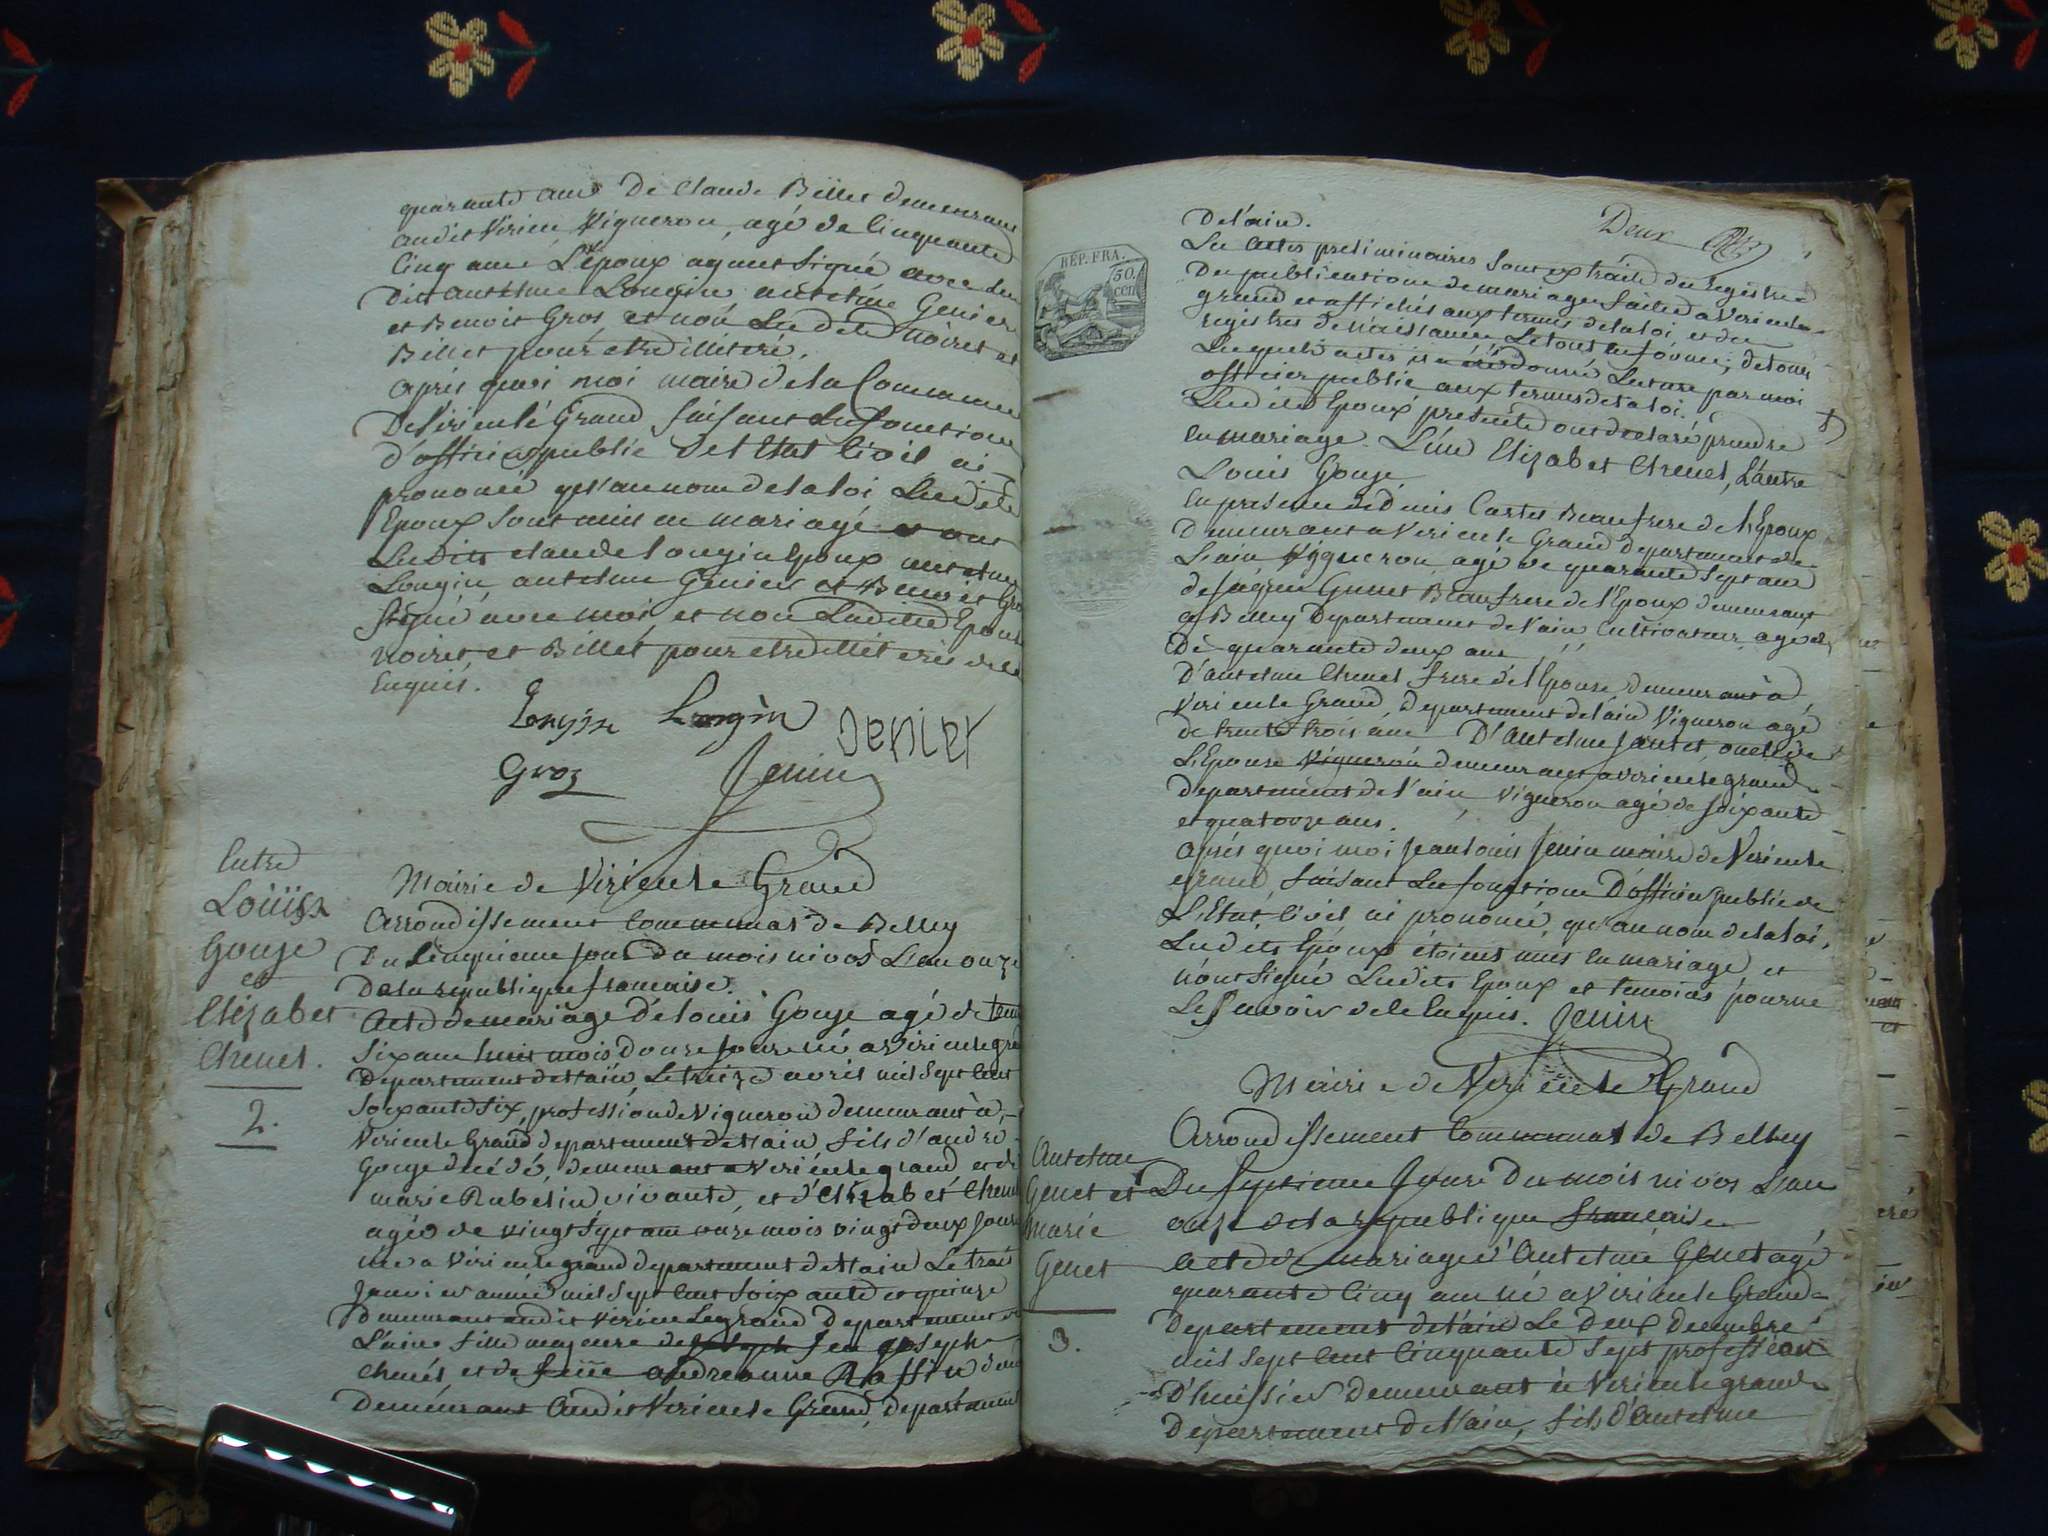 quarante ans De Claude Billet demeurant
audit Virieu Vigneron, agé de Cinquante
Cinq ans L'époux ayant Signé avec les
dits antelme Longin antelme Genier
et Benoit Gros, et non Lesdits Noiret et
Billet pour etre illiteré,
après quoi moi maire de la Commune
De Virieu le Grand faisant Les fonctions
d'officier public de l'Etat Civil ai
prononcé qu'au nom de la loi Lesdits
Epoux sont unis en mariage et ont
Lesdits claude Longin Epoux antelme
Longin, antelme Genier et Benoit Gros
Signé avec moi, et non Ladite Epouse
Noiret et Billet pour etre illiterés de ce
Enquis.
Longin Longin Genier
Groz Jenin
Entre
Loüis
Gouje
et
Elizabet
Chenet.
2.
Mairie de Virieu le Grand
Arrondissement Communal de Belley
Du Cinquieme jour du mois nivos L'an onze
De la republique francaise.
Acte de mariage de louis Gouje agé de trente
Six ans huit mois douze jours né a Virieu le grand
Departement de l'ain, Le treize avril mil Sept Cent
Soixante Six, profession de Vigneron demeurant à
Virieu le Grand departement de l'ain fils d'andré
Gouje décédé, demeurant a Virieu le grand, et de
marie Rubelin vivante, et d'Elizabet Chenet
agée de vingt Sept ans onze mois vingt deux jours
née a Virieu le grand departement de l'ain Le trois
Janvier année mil Sept Cent Soixante et quinze
Demeurant audit Virieu Le grand Departement de
L'ain fille majeure de feu joseph
Chenet, et de andreanne Raffin
Demeurant Audit Virieu le Grand, departement
Deux
De l'ain.
Les actes preliminaires Sont extraits des registres
De publications de mariages faites a Virieu le
grand et affichés aux termes de la loi, et des
registres de naissances Le tout en forme; de tous
Lesquels actes il a été donné Lecture par moi
officier public aux termes de la loi.
Lesdits Epoux presents ont declaré prendre
en mariage. L'un Elizabet Chenet, L'autre
Louis Gouje.
En presence de Denis Cartet Beaufrere de l'Epoux
Demeurant a Virieu le Grand Departement de
L'ain Vigneron agé de quarante Sept ans
de Genet Beaufrere de l'Epoux demeurant
a Belley Departement de l'ain Cultivateur, agé
De quarante deux ans
D'antelme Chenet frere de l'Epouse demeurant à
Virieu le Grand, Departement de l'ain Vigneron agé
de trente trois ans D'antelme oncle de
L'Epouse Vigneron demeurant a virieu le grand
departement de l'ain Vigneron agé de soixante
et quatorze ans.
Après quoi moi jean louis Jenin maire de Virieu le
grand, faisant Les fonctions D'officier public de
L'Etat Civil ai prononcé, qu'au nom de la loi,
Lesdits Epoux étoient unis en mariage, et
n'ont Signé Lesdits Epoux et temoins pour ne
Le Savoir de ce Enquis. Jenin
REP. FRA.
50.
cen
Antelme
Genet et
marie
Genet
3.
Mairie de Virieu le Grand
Arrondissement Communal de Belley
Du Septieme Jour Du mois nivos L'an
onze de la republique francaise
acte de mariage d'Antelme Genet agé
quarante Cinq ans né a Virieu le Grand
Departement de l'ain Le Deux Decembre
mil Sept Cent Cinquante Sept profession
D'huissier Demeurant à Virieu le grand
Departement de l'ain, fils d'Antelme